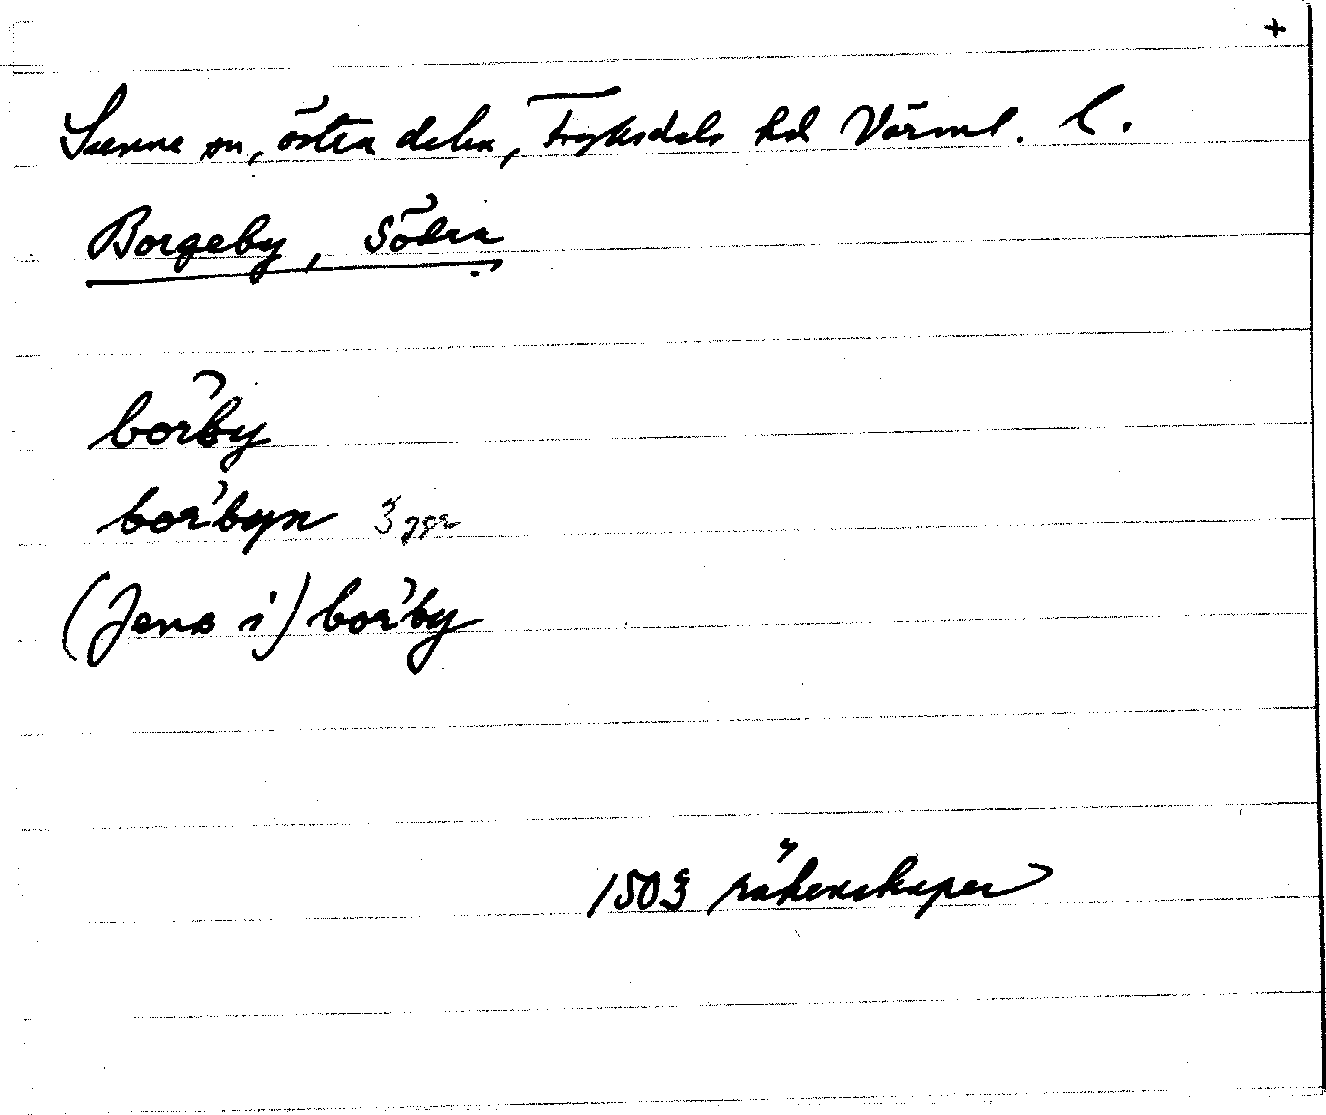 +
Sunne sn, östra delen, Fryksdals hd Värml. l.
Borgeby, Södra
bor̉by
bor̉byn 3 ggr
(Jens i) bor̉by
1503 räkenskaper